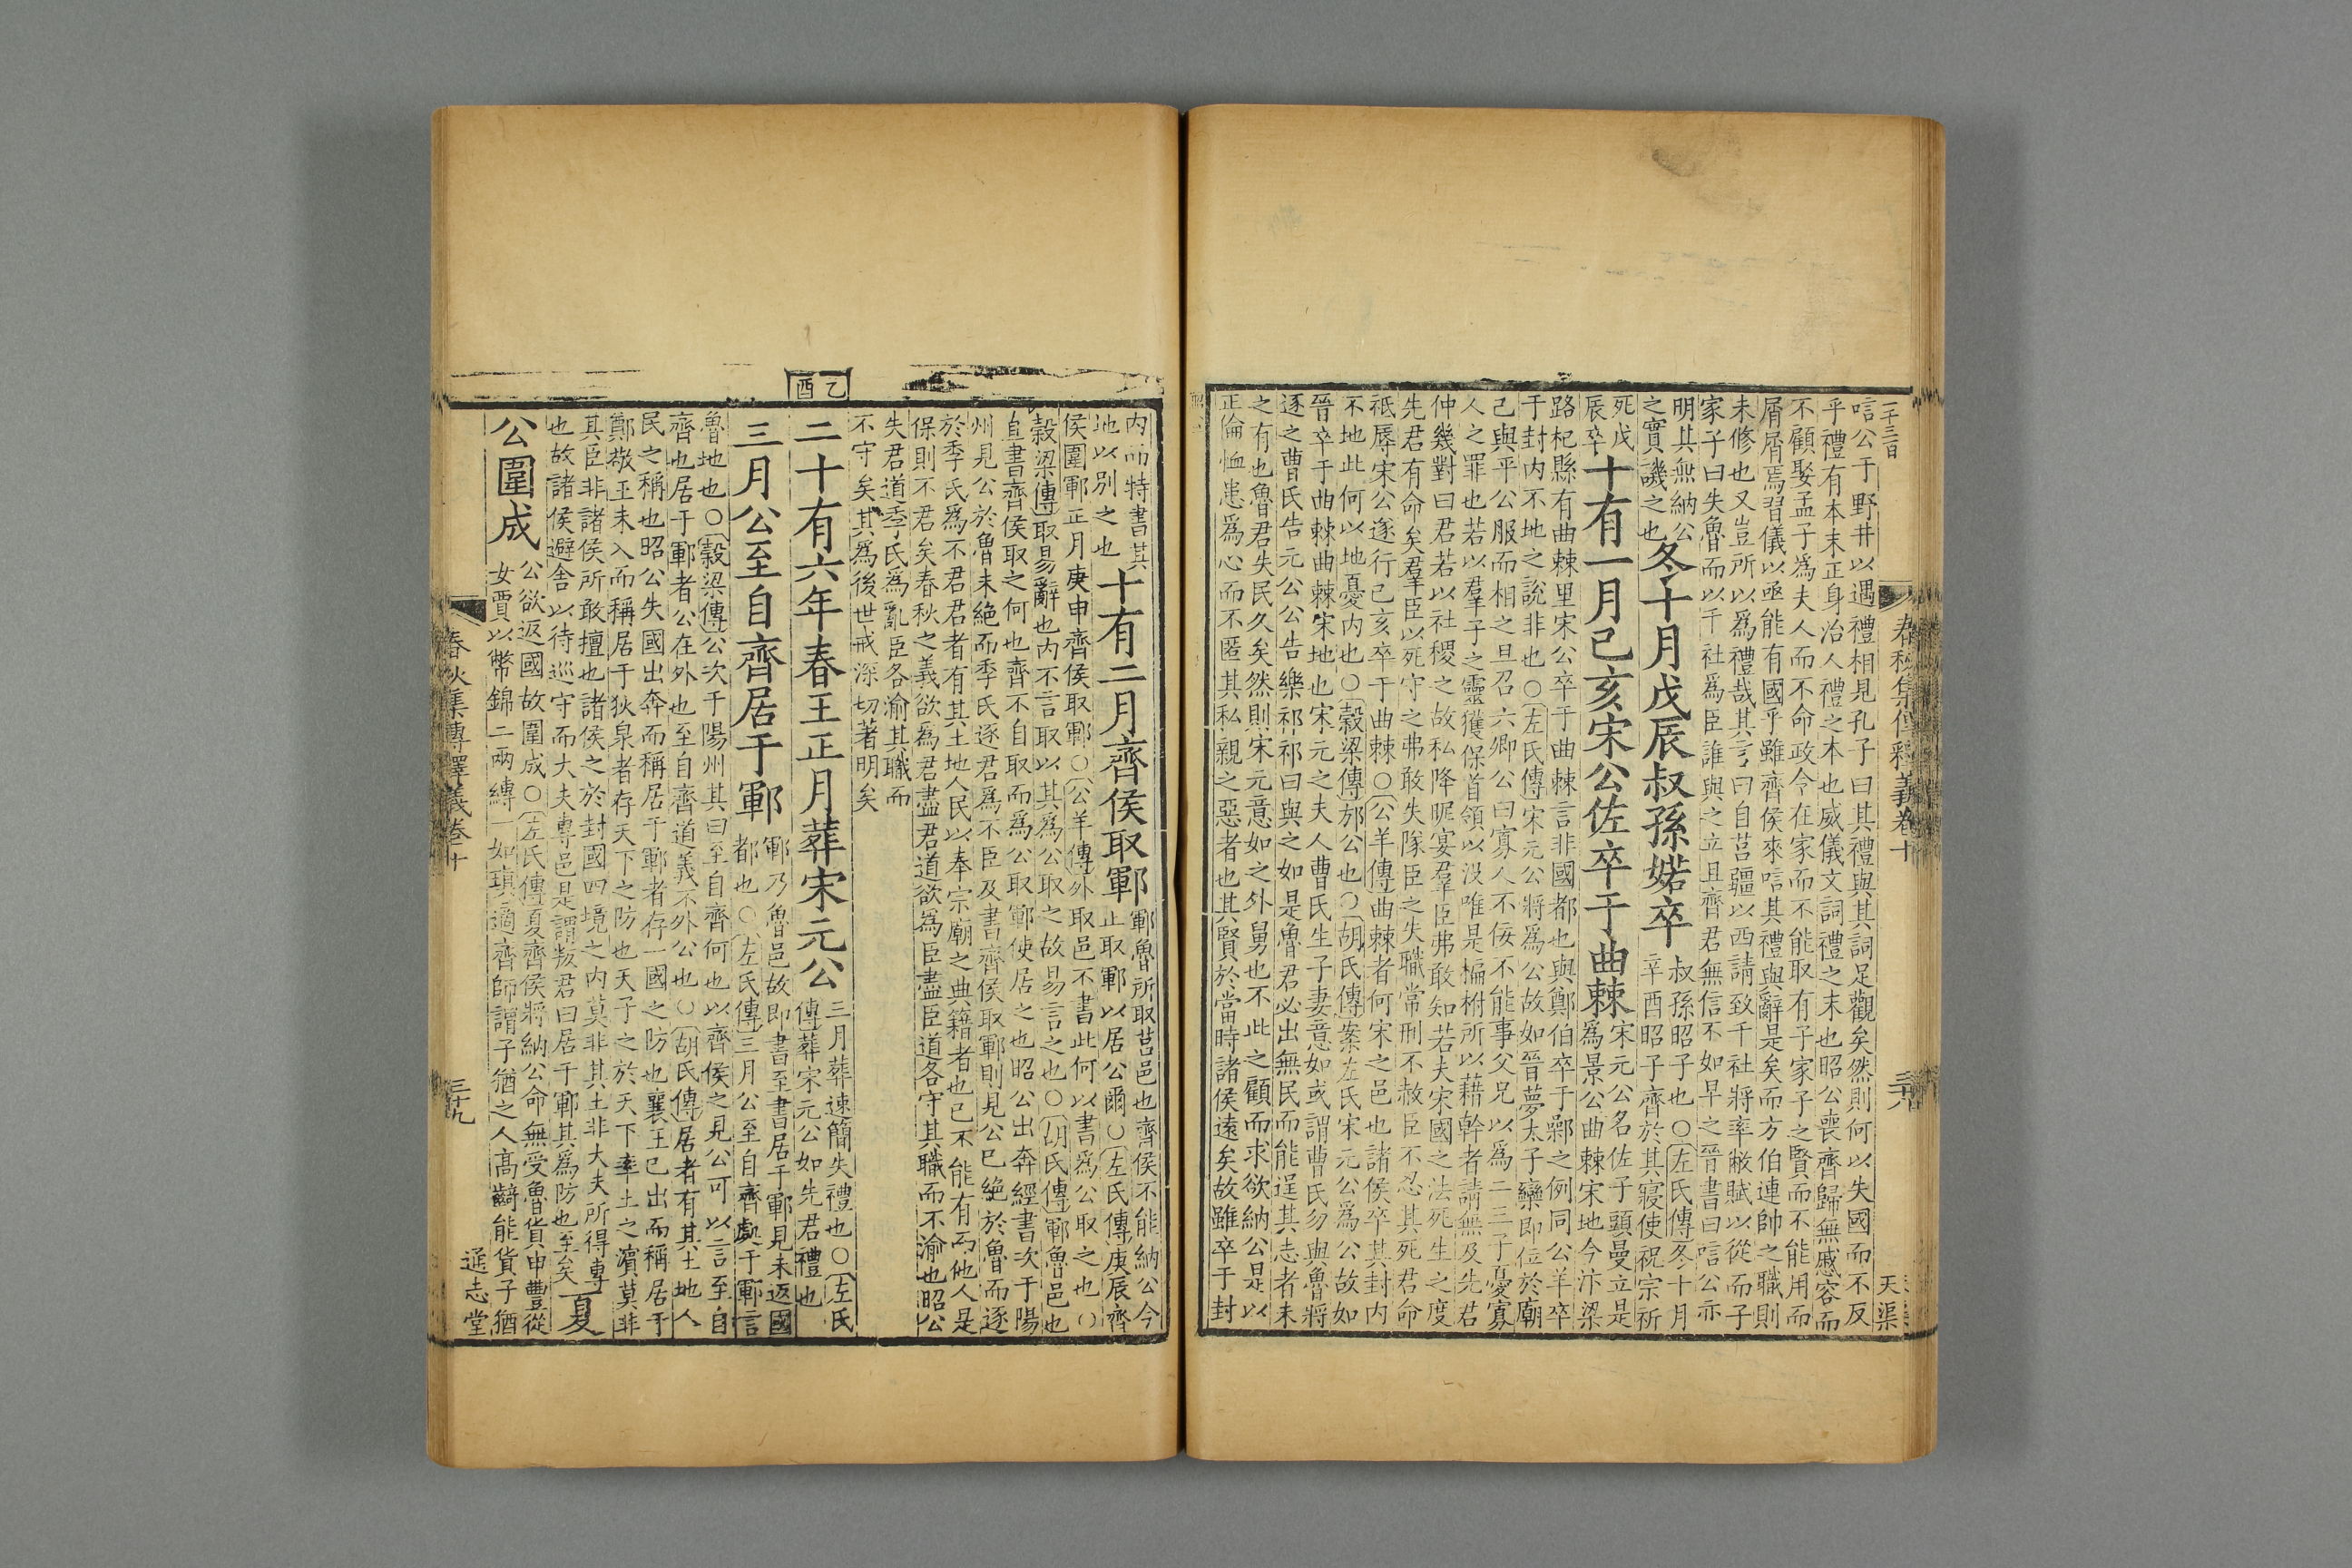 二千三百
春秋集傳釋義卷十
三十八
天渠
唁公于野井以遇禮相見孔子曰其禮與其詞足觀矣然則何以失國而不反
乎禮有本末正身治人禮之本也威儀文詞禮之末也昭公喪齊歸無慼容而
不顧娶孟子爲夫人而不命政令在家而不能取有子家子之賢而不能用而
屑屑焉習儀以亟能有國乎雖齊侯來唁其禮與辭是矣而方伯連帥之職則
未修也又豈所以爲禮哉其言曰自莒疆以西請致千社將率敝賦以從而子
家子曰失魯而以千社爲臣誰與之立且齊君無信不如早之晉書曰唁公亦
明其無納公
之實譏之也
冬十月戊辰叔孫婼卒
叔孫昭子也○左氏傳冬十月
辛酉昭子齊於其寢使祝宗祈
死戊
辰卒
十有一月己亥宋公佐卒于曲棘
宋元公名佐子頭曼立是
爲景公曲棘宋地今汴梁
路杞縣有曲棘里宋公卒于曲棘言非國都也與鄭伯卒于鄵之例同公羊卒
于封内不地之說非也○左氏傳宋元公將爲公故如晉夢太子欒即位於廟
己與平公服而相之旦召六卿公曰寡人不佞不能事父兄以爲二三子憂寡
人之罪也若以羣子之靈獲保首領以没唯是楄柎所以藉幹者請無及先君
仲幾對曰君若以社稷之故私降昵宴羣臣弗敢知若夫宋國之法死生之度
先君有命矣羣臣以死守之弗敢失隊臣之失職常刑不赦臣不忍其死君命
祇辱宋公遂行己亥卒于曲棘○公羊傳曲棘者何宋之邑也諸侯卒其封内
不地此何以地憂内也○穀梁傳邡公也○胡氏傳案左氏宋元公爲公故如
晉卒于曲棘曲棘宋地也宋元之夫人曹氏生子妻意如或謂曹氏勿與魯將
逐之曹氏告元公公告樂祁祁曰與之如是魯君必出無民而能逞其志者未
之有也魯君失民久矣然則宋元意如之外舅也不此之顧而求欲納公是以
正倫恤患爲心而不匿其私親之惡者也其賢於當時諸侯遠矣故雖卒于封
内而特書其
地以别之也
十有二月齊侯取鄆
鄆魯所取莒邑也齊侯不能納公今
止取鄆以居公爾○左氏傳庚辰齊
侯圍鄆正月庚申齊侯取鄆○公羊傳外取邑不書此何以書爲公取之也○
穀梁傳取易辭也内不言取以其爲公取之故易言之也○胡氏傳鄆魯邑也
直書齊侯取之何也齊不自取而爲公取鄆使居之也昭公出奔經書次于陽
州見公於魯未絶而季氏逐君爲不臣及書齊侯取鄆則見公已絶於魯而逐
於季氏爲不君君者有其土地人民以奉宗廟之典籍者也已不能有而他人是
保則不君矣春秋之義欲爲君盡君道欲爲臣盡臣道各守其職而不渝也昭公
失君道季氏爲亂臣各渝其職而
不守矣其爲後世戒深切著明矣
乙酉
二十有六年春王正月葬宋元公
三月葬速簡失禮也○左氏
傳葬宋元公如先君禮也
三月公至自齊居于鄆
鄆乃魯邑故即書至書居于鄆見未返國
都也○左氏傳三月公至自齊處于鄆言
魯地也○穀梁傳公次于陽州其曰至自齊何也以齊侯之見公可以言至自
齊也居于鄆者公在外也至自齊道義不外公也○胡氏傳居者有其土地人
民之稱也昭公失國出奔而稱居于鄆者存一國之防也襄王已出而稱居于
鄭敬王未入而稱居于狄泉者存天下之防也天子之於天下率土之濱莫非
其臣非諸侯所敢擅也諸侯之於封國四境之内莫非其土非大夫所得專
也故諸侯避舍以待巡守而大夫專邑是謂叛君曰居于鄆其爲防也至矣
夏
公圍成
公欲返國故圍成○左氏傳夏齊侯將納公命無受魯貨申豐從
女賈以幣錦二兩縳一如瑱適齊師謂子猶之人高齮能貨子猶
春秋集傳釋義卷十
三十九
通志堂